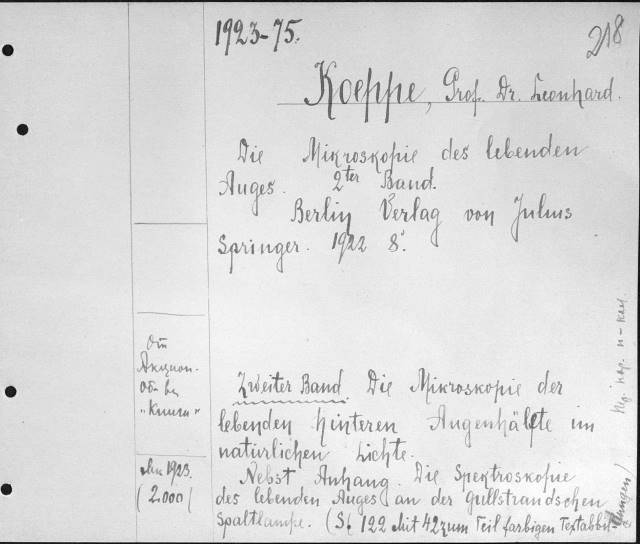 1923-75.
218
Koeppe, Prof. Dr. Leonhard.
Die Mikroskopie des lebenden
Auges. 2ter Band.
Berlin Verlag von Julius
Springer. 1922 8°.
От
Акцион.
Об-ва
"Книга"
1923.
(2.000)
Zweiter Band. Die Mikroskopie der
lebenden hinteren Augenhälfte im
natürlichen Lichte.
Nebst Anhang. Die Spektroskopie
des lebenden Auges an der Gullstrandschen
Spaltlampe. (S. 122 Mit 42 zum Teil farbigen Textabbil-
dungen)